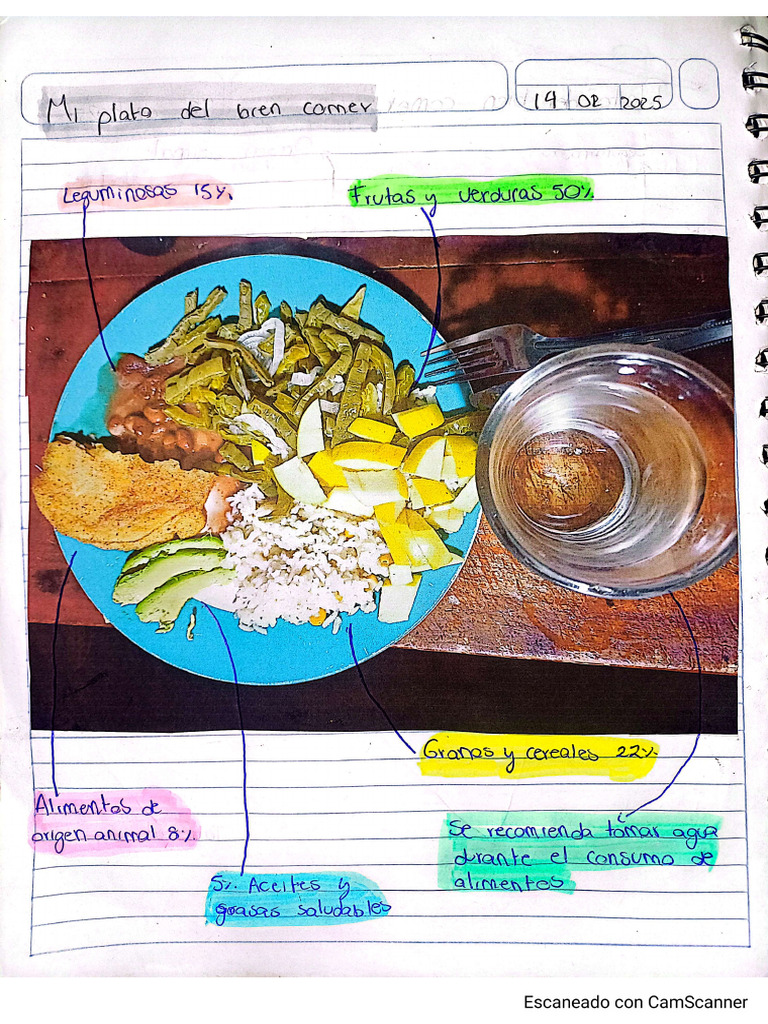 Mi plato del bien comer
19 02 2025
Leguminosas 15%.
Frutas y verduras 50%.
Granos y cereales 22%.
Alimentos de
origen animal 8%.
Se recomienda tomar agua
durante el consumo de
alimentos
5%. Aceites y
grasas saludables
Escaneado con CamScanner